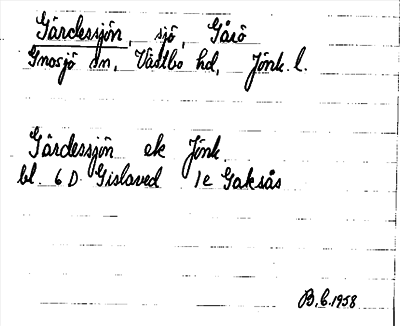 Gärdessjön, sjö, Gåsö
Gnosjö sn, Västbo hd, Jönk. l.
Gärdessjön ek Jönk.
bl. 6 D Gislaved 1c Gaksås
B. 6. 1958